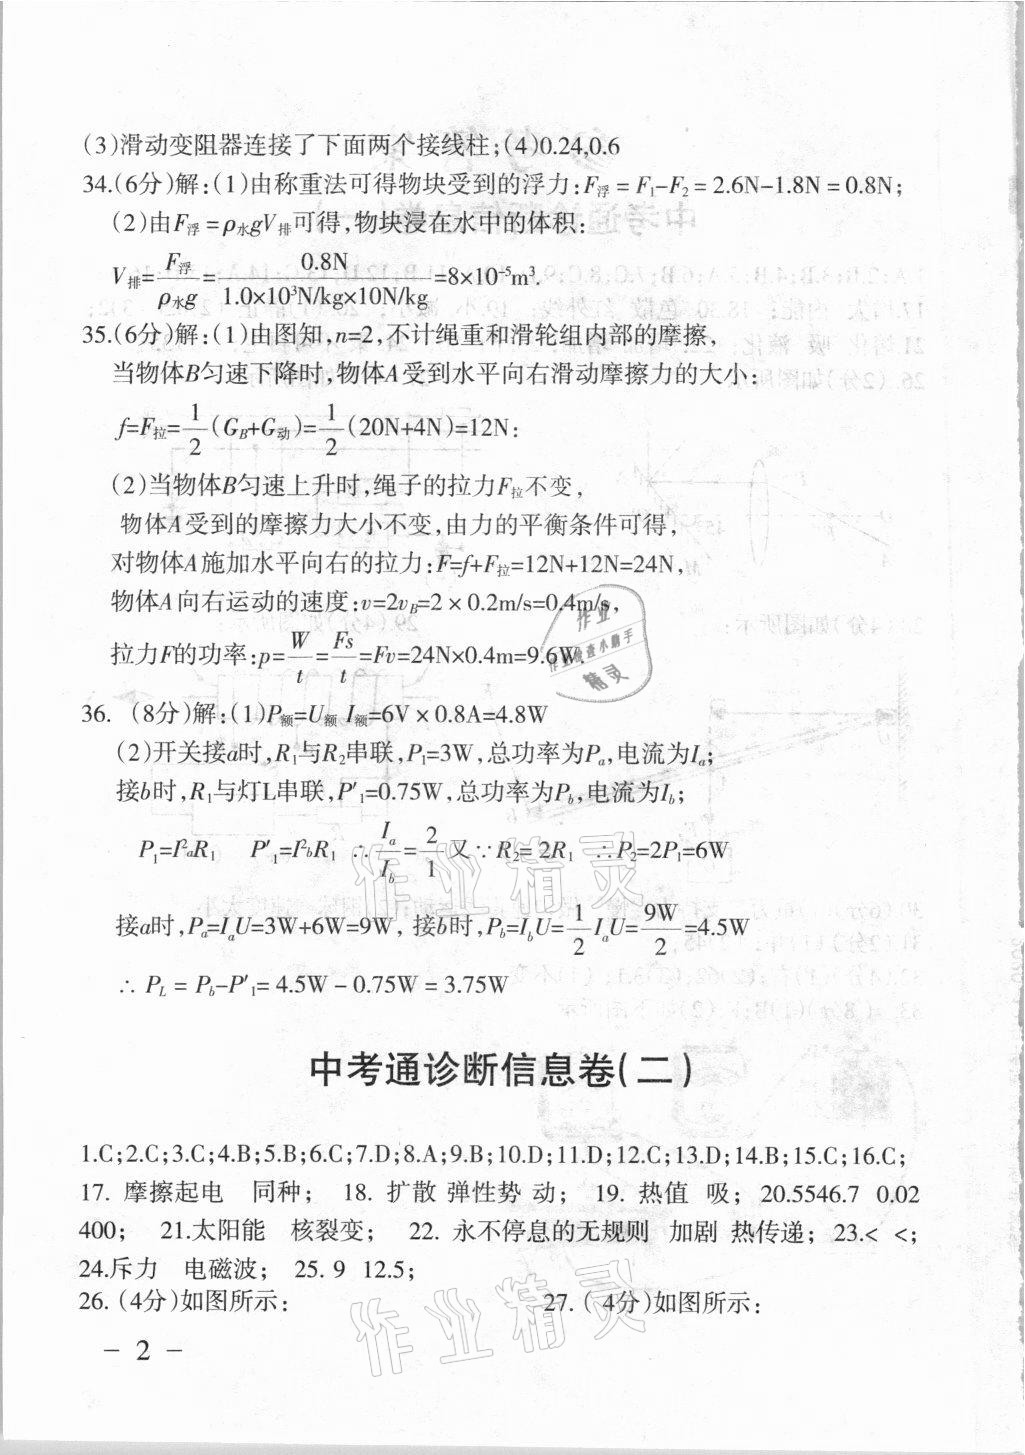 (3)滑动变阻器连接了下面两个接线柱;(4)0.24,0.6
34.(6分)解:(1)由称重法可得物块受到的浮力:F浮=F₁-F₂=2.6N-1.8N=0.8N;
(2)由F浮=ρ水gV排可得,物块浸在水中的体积:
V排=F浮/ρ水g=0.8N/1.0×10³N/kg×10N/kg=8×10⁻⁵m³.
35.(6分)解:(1)由图知,n=2,不计绳重和滑轮组内部的摩擦,
当物体B匀速下降时,物体A受到水平向右滑动摩擦力的大小:
f=F拉=1/2(G_B+G动)=1/2(20N+4N)=12N:
(2)当物体B匀速上升时,绳子的拉力F拉不变,
物体A受到的摩擦力大小不变,由力的平衡条件可得,
对物体A施加水平向右的拉力:F=f+F拉=12N+12N=24N,
物体A向右运动的速度:v=2v_B=2×0.2m/s=0.4m/s,
拉力F的功率:p=W/t=Fs/t=Fv=24N×0.4m=9.6W.
36. (8分)解:(1)P额=U额 I额=6V×0.8A=4.8W
(2)开关接a时,R₁与R₂串联,P₁=3W,总功率为P_a,电流为I_a;
接b时,R₁与灯L串联,P′₁=0.75W,总功率为P_b,电流为I_b;
P₁=I²_aR₁ P′₁=I²_bR₁ ∴I_a/I_b=2/1 又∵R₂=2R₁ ∴P₂=2P₁=6W
接a时,P_a=I_aU=3W+6W=9W, 接b时,P_b=I_bU=1/2 I_aU=9W/2=4.5W
∴ P_L=P_b-P′₁=4.5W-0.75W=3.75W
中考通诊断信息卷(二)
1.C;2.C;3.C;4.B;5.B;6.C;7.D;8.A;9.B;10.D;11.D;12.C;13.D;14.B;15.C;16.C;
17. 摩擦起电 同种; 18. 扩散 弹性势 动; 19. 热值 吸; 20.5546.7 0.02
400; 21.太阳能 核裂变; 22. 永不停息的无规则 加剧 热传递; 23.< <;
24.斥力 电磁波; 25. 9 12.5;
26. (4分)如图所示: 27. (4分)如图所示:
- 2 -
作业
作业检查小助手
精灵
作业精灵
作业精灵